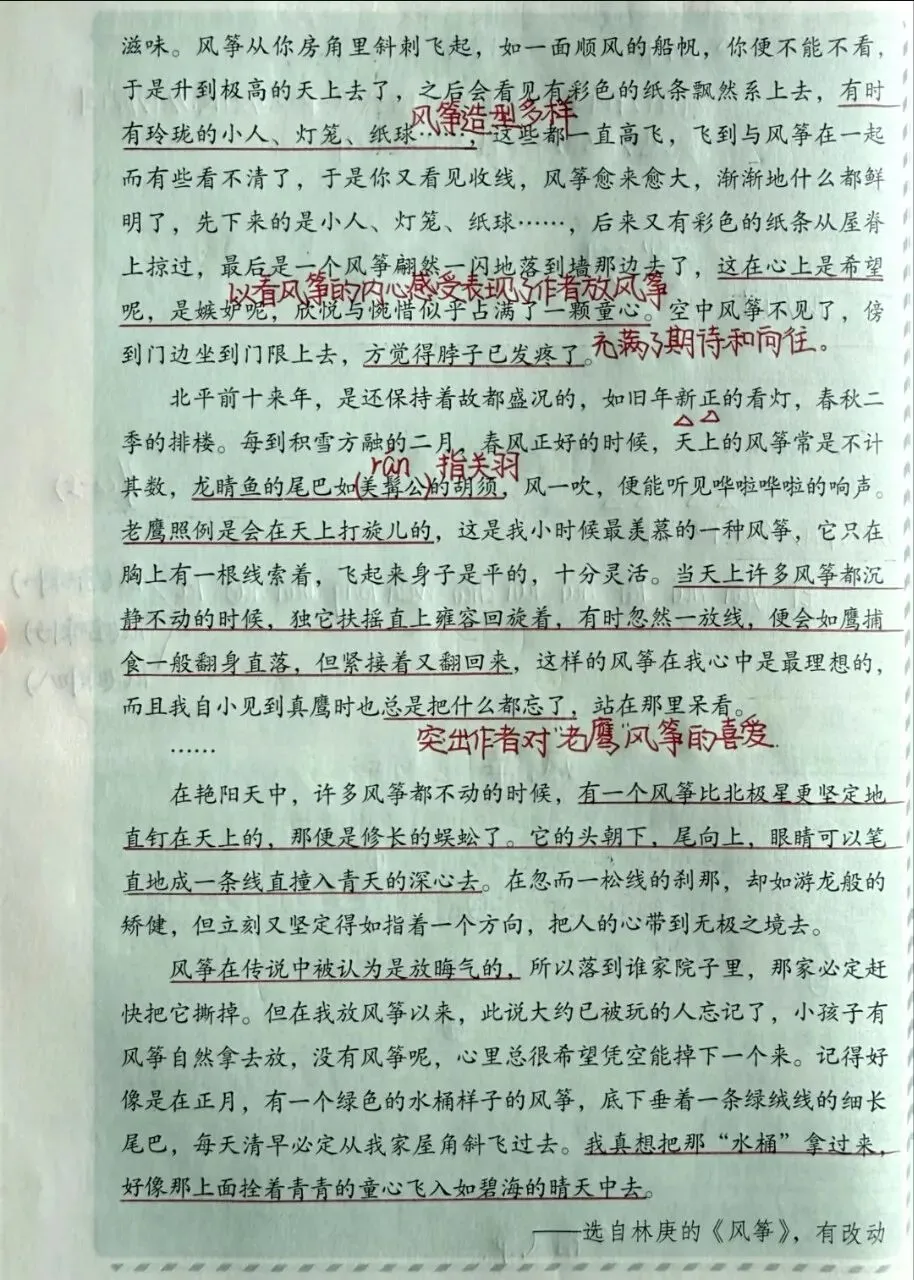 滋味。风筝从你房角里斜刺飞起，如一面顺风的船帆，你便不能不看，
于是升到极高的天上去了，之后会看见有彩色的纸条飘然系上去，有时
风筝造型多样
有玲珑的小人、灯笼、纸球……，这些都一直高飞，飞到与风筝在一起
而有些看不清了，于是你又看见收线，风筝愈来愈大，渐渐地什么都鲜
明了，先下来的是小人、灯笼、纸球……，后来又有彩色的纸条从屋脊
上掠过，最后是一个风筝翩然一闪地落到墙那边去了，这在心上是希望
以看风筝的内心感受表现了作者放风筝
呢，是嫉妒呢，欣悦与惋惜似乎占满了一颗童心。空中风筝不见了，傍
到门边坐到门限上去，方觉得脖子已发疼了。充满了期待和向往。
北平前十来年，是还保持着故都盛况的，如旧年新正的看灯，春秋二
季的排楼。每到积雪方融的二月，春风正好的时候，天上的风筝常是不计
rán 指关羽
其数，龙睛鱼的尾巴如(美髯公)的胡须，风一吹，便能听见哗啦哗啦的响声。
老鹰照例是会在天上打旋儿的，这是我小时候最羡慕的一种风筝，它只在
胸上有一根线索着，飞起来身子是平的，十分灵活。当天上许多风筝都沉
静不动的时候，独它扶摇直上雍容回旋着，有时忽然一放线，便会如鹰捕
食一般翻身直落，但紧接着又翻回来，这样的风筝在我心中是最理想的，
而且我自小见到真鹰时也总是把什么都忘了，站在那里呆看。
突出作者对“老鹰”风筝的喜爱.
……
在艳阳天中，许多风筝都不动的时候，有一个风筝比北极星更坚定地
直钉在天上的，那便是修长的蜈蚣了。它的头朝下，尾向上，眼睛可以笔
直地成一条线直撞入青天的深心去。在忽而一松线的刹那，却如游龙般的
矫健，但立刻又坚定得如指着一个方向，把人的心带到无极之境去。
风筝在传说中被认为是放晦气的，所以落到谁家院子里，那家必定赶
快把它撕掉。但在我放风筝以来，此说大约已被玩的人忘记了，小孩子有
风筝自然拿去放，没有风筝呢，心里总很希望凭空能掉下一个来。记得好
像是在正月，有一个绿色的水桶样子的风筝，底下垂着一条绿绒线的细长
尾巴，每天清早必定从我家屋角斜飞过去。我真想把那“水桶”拿过来，
好像那上面拴着青青的童心飞入如碧海的晴天中去。
——选自林庚的《风筝》，有改动